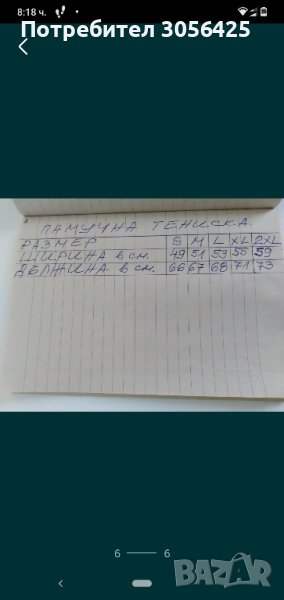 8:18 ч.
Потребител 3056425
ПАМУЧНА ТЕНИСКА
РАЗМЕР S M L XL 2XL
ШИРИНА в см. 49 51 53 56 59
ДЪЛЖИНА в см. 66 67 68 71 73
6 6
BAZAR